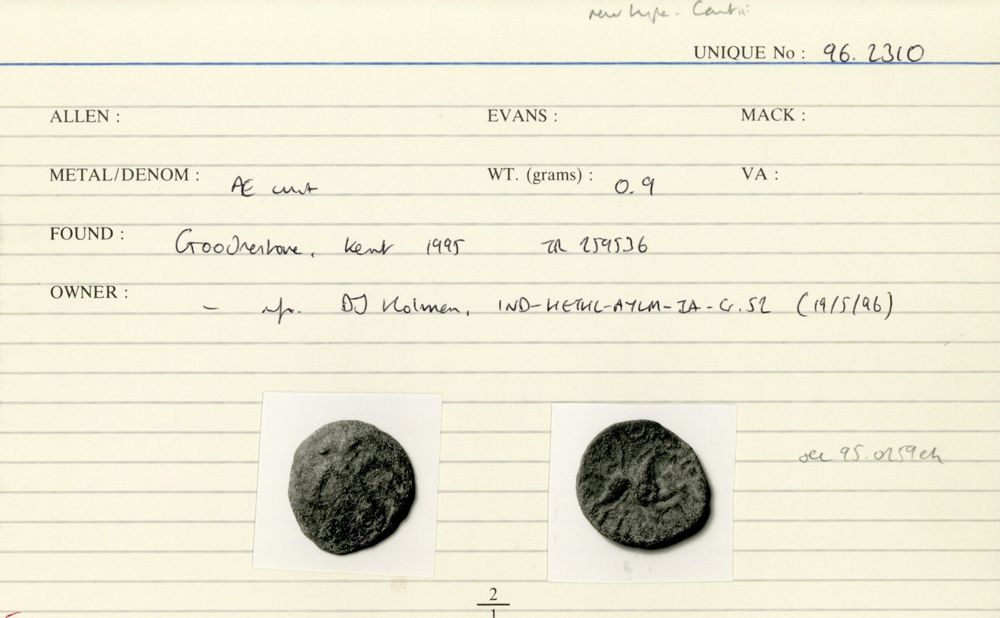 new type - Cantii
UNIQUE No : 96. 2310
ALLEN : EVANS : MACK :
METAL/DENOM : Æ unit WT. (grams) : 0.9 VA :
FOUND : Goodnestone, Kent 1995 TR 259536
OWNER : - DJ Holman, (19/5/96)
see 95.0159
2
1